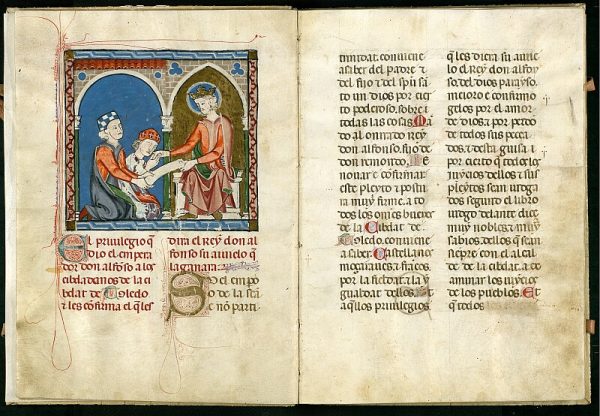 El priuilegio q
dio el empera
dor don alfonso a los
cibdadanos de la ci
bdat de Toledo
z les confirma el q les
diera el Rey don al
fonso su auuelo q
la ganara.
So el impio
do de la scã
e nõ parti
trinidat. conuiene
a saber del padre z
del fijo z del spũ sã
to un dios por cier
to poderoso. sobre
todas las cosas.
al onrrado rey
don alfonso. fijo de
don remondo.
nouar e confirmar
este pleyto z postu
ra muy firme. a to
dos los omes buenos
de la Cibdat de
Toledo. conuiene
a saber. Castellanos
moçaraues z francos.
por la fieldat z la y
gualdat dellos.
aquellos priuilegios
q les diera su auue
lo el Rey don alfon
so. de dios parayso.
meioro e confirmo
gelos por el amor
de dios. z por perdo
de todos sus peca
dos. z desta guisa z
por cierto q todos los
iuyzios dellos z sus
pleytos sean iudga
dos segunt el libro
iudgo delante diez
muy nobles z muy
sabios dellos q sean
siempre con el alcal
de de la cibdat. a co
aminar los iuyzios
de los pueblos. Et
q todos